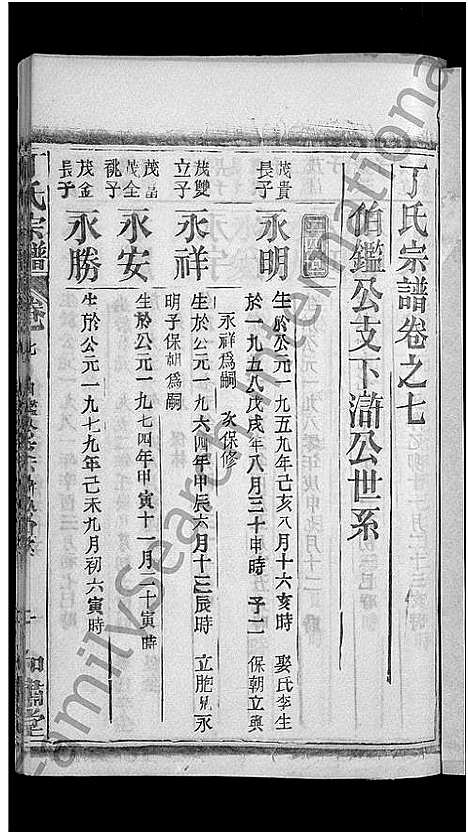 丁氏宗譜卷之七
伯鑑公支下滸公世系
茂貴
長子
永明
生於公元一九五九年己亥八月十六亥時 娶氏李生
於一九五八戊戌年八月三十申時 子二 保朝立與
永祥爲嗣 次保修
茂雙
立子
永祥
生於公元一九六四年甲辰六月十三辰時 立胞兄永
明子保朝爲嗣
茂富
茂全
祧子
永安
生於公元一九七四年甲寅十一月二十寅時
茂金
長子
永勝
生於公元一九七九年己未九月初六寅時
丁氏宗譜
卷七
FamilySearch International